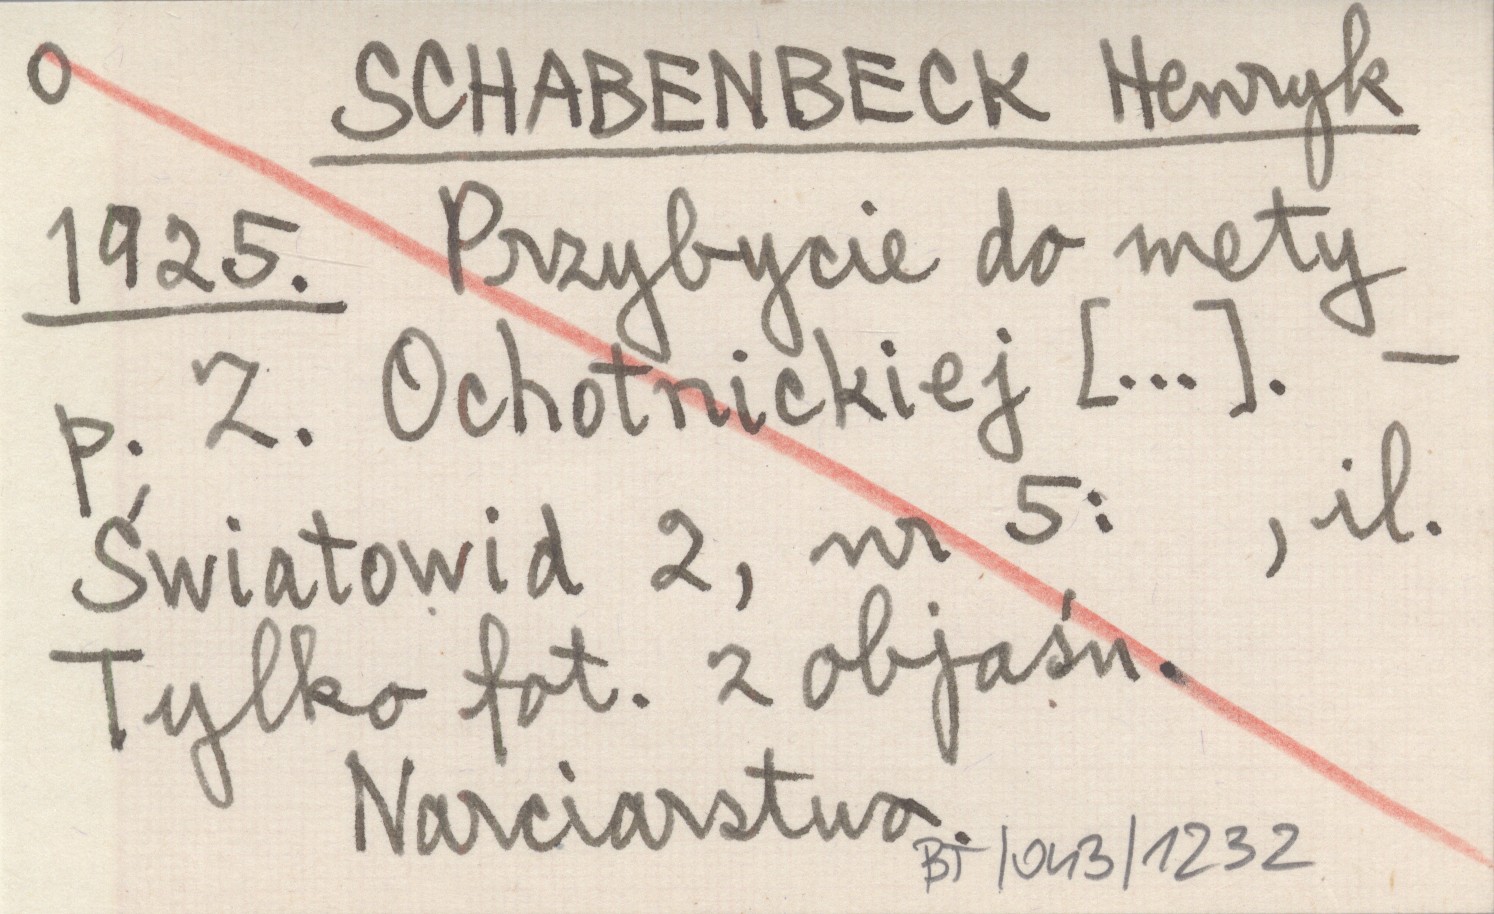 O SCHABENBECK Henryk
1925. Przybycie do mety
p. Z. Ochotnickiej [...]. —
Światowid 2, nr 5: , il.
Tylko fot. z objaśn.
Narciarstwo.
BT/043/1232